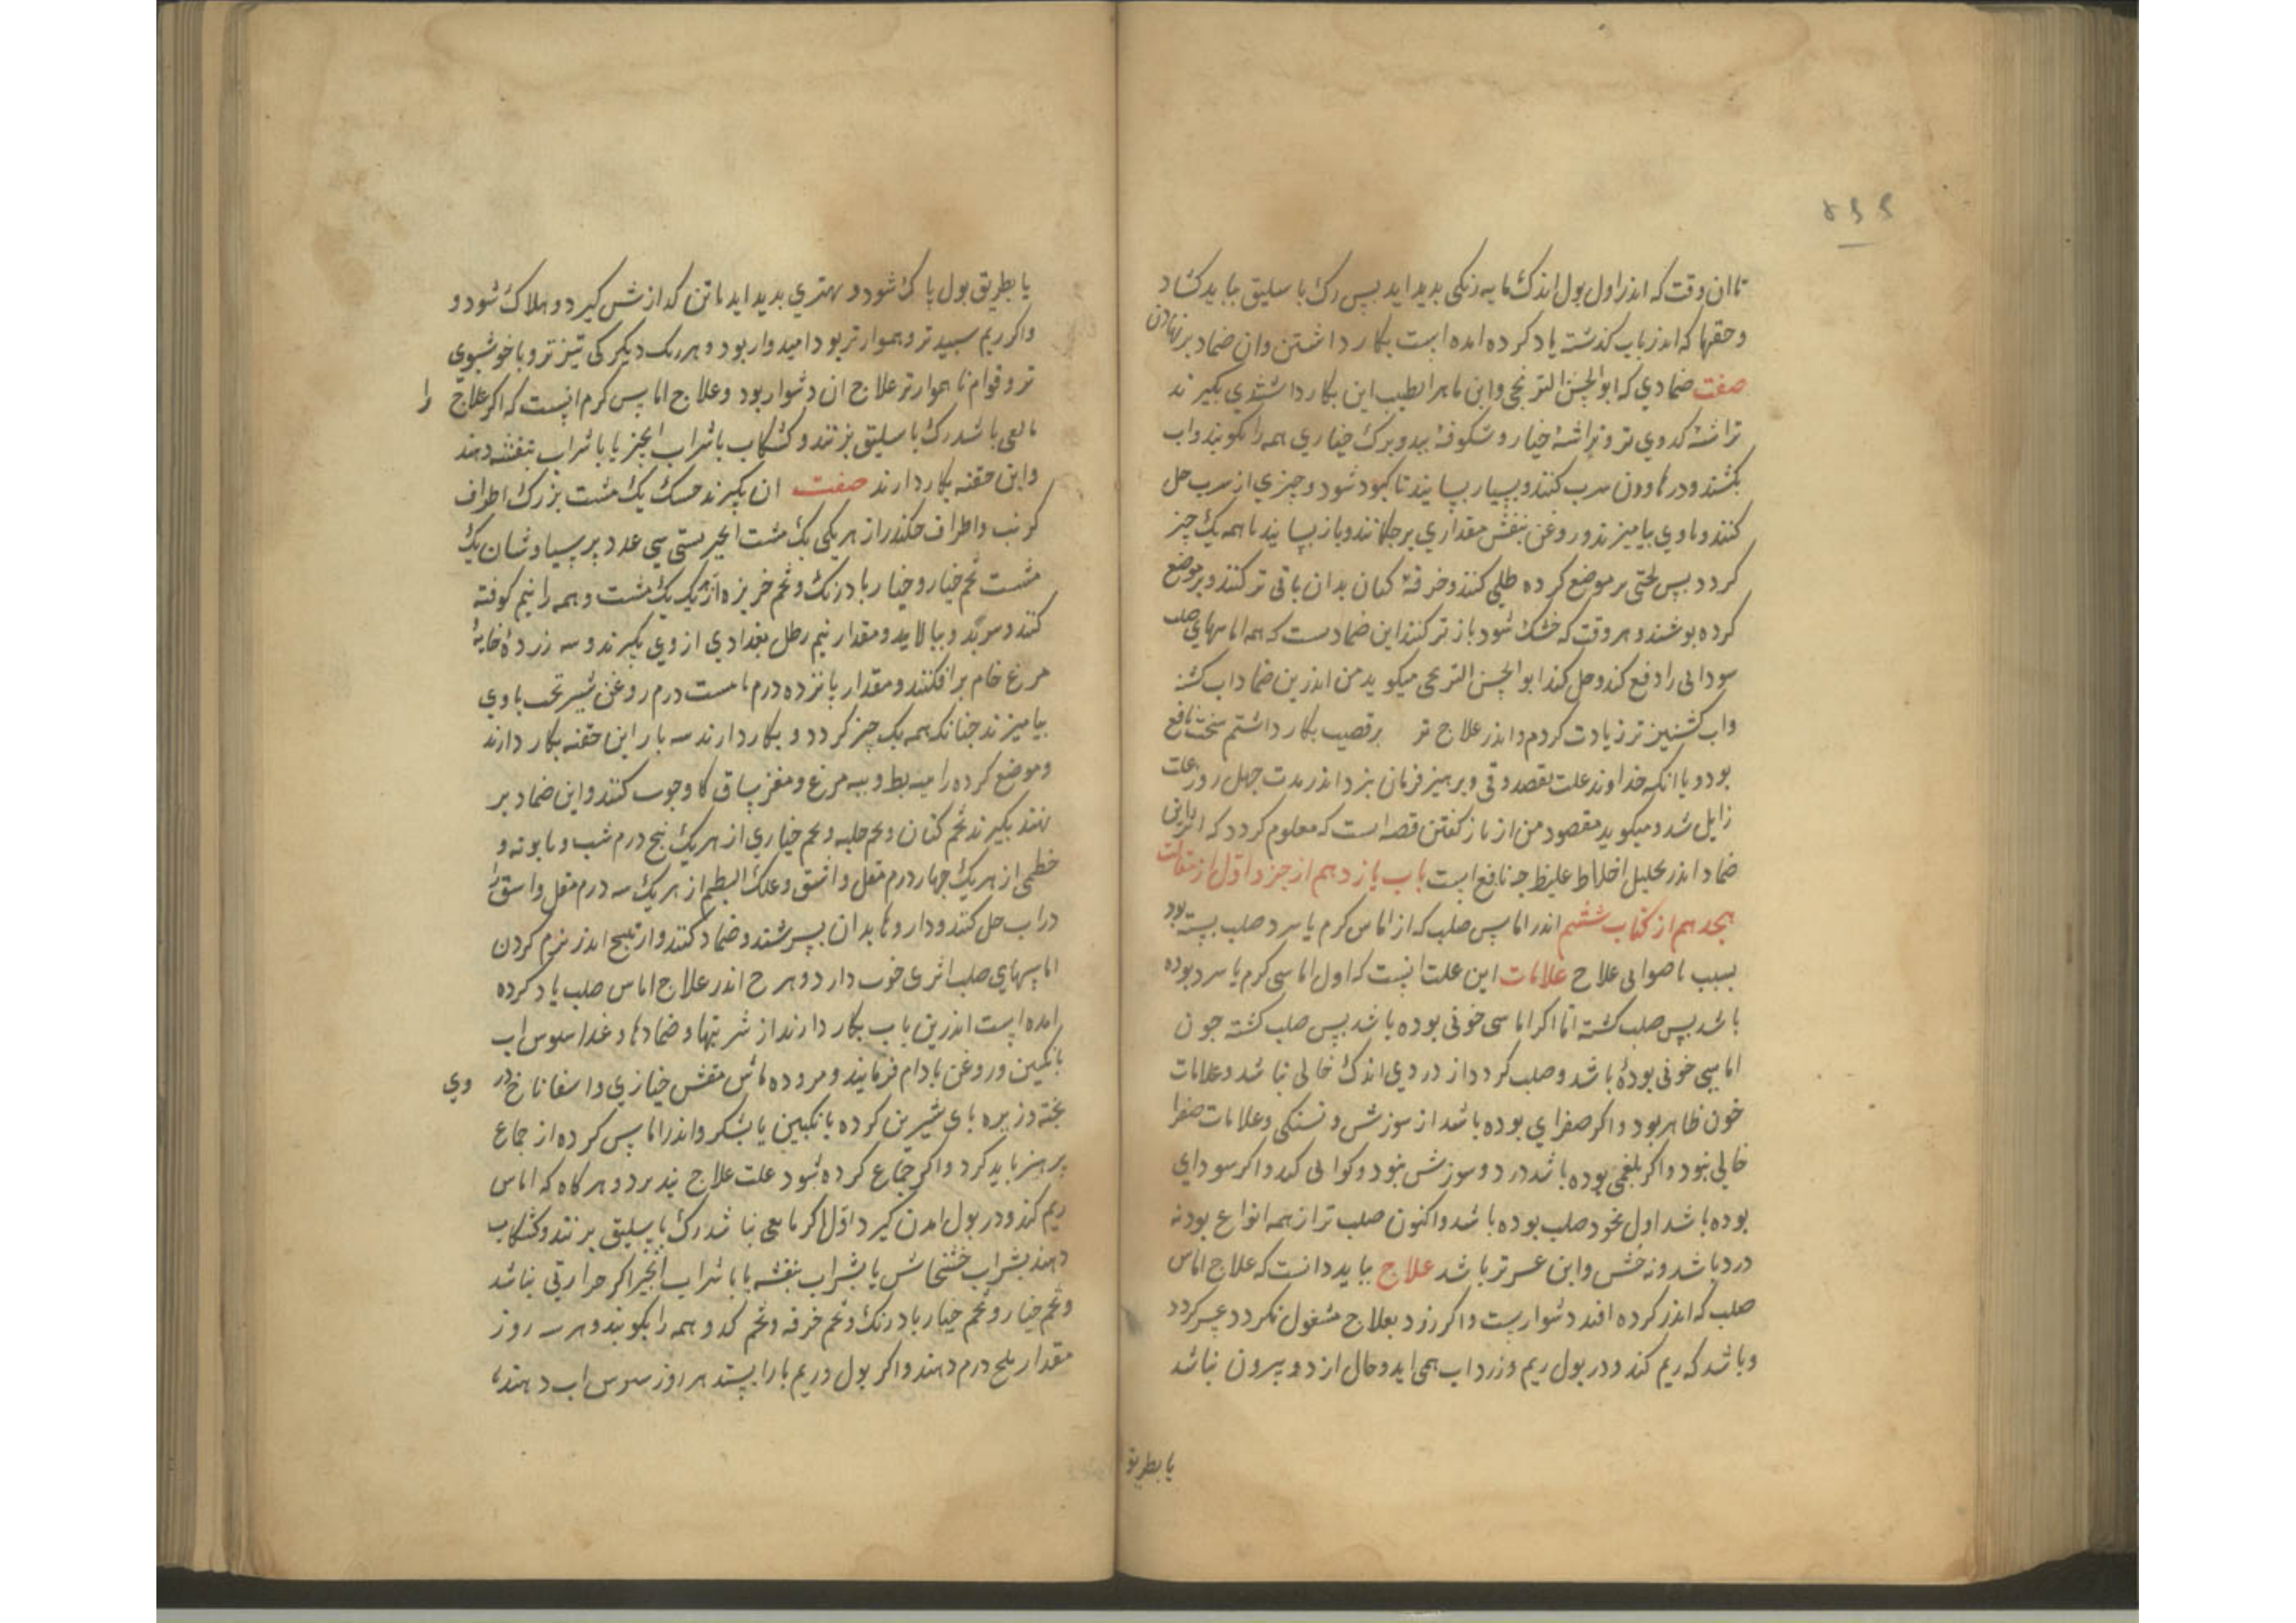 تا ان وقت که اندر اول بول اندک مایه رنکی بدید اید پس رک با سلیق بباید کشاد
و حقنها که اندر باب کذشته یاد کرده امده است بکار داشتن و ان ضماد بر نهادن
صفت ضمادی که ابوالحسن الترنجی و ابن ماهر الطبیب این بکار داشتندی بکیرند
تراشه کدوی تر و تراشهٔ خیار و شکوفهٔ بید و برک خبازی همه را بکوبند و اب
بکشند و در هاون سرب کنند و بسیار بسایند تا کبود شود و چیزی از سرب حل
کنند و با وی بیامیزند و روغن بنفش مقداری بر چکانند و باز بسایند تا همه یک چیز
کردد پس لختی بر موضع کرده طلی کنند و خرقهٔ کتان بدان باقی تر کنند و بر موضع
کرده پوشند و هر وقت که خشک شود باز تر کنند این ضمادست که همه اماسهای صلب
سودایی را دفع کند و حل کند ابوالحسن الترنجی میکوید من اندرین ضماد اب کشنه
و اب کشنیز تر زیادت کردم و اندر علاج تر بر قصیب بکار داشتم سخت نافع
بود و با انکه خداوند علت بقصد وقی و پرهیز فرمان نبرد اندر مدت چهل روز علت
زایل شد و میکوید مقصود من از باز کفتن قصه است که معلوم کردد که اثر این
ضماد اندر تحلیل اخلاط غلیظ چه نافع است باب یازدهم از جزو اول از مقالت
هجدهم از کتاب ششم اندر اماس صلب که از اماس کرم یا سرد صلب بسته بود
بسبب ناصوابی علاج علامات این علت انست که اول اماسی کرم یا سرد بوده
باشد پس صلب کشته اما اکر اماسی خونی بوده باشد پس صلب کشته چون
اماسی خونی بوده باشد و صلب کردد از دردی اندک خالی نباشد و علامات
خون ظاهر بود و اکر صفرای بوده باشد از سوزش و تشنکی و علامات صفرا
خالی نبود و اکر بلغمی بوده باشد درد و سوزش نبود و کرانی کند و اکر سودای
بوده باشد اول بخود صلب بوده باشد و اکنون صلب تر از همه انواع بود نه
درد باشد و نه خشش و این عسرتر باشد علاج بباید دانست که علاج اماس
صلب که اندر کرده افتد دشوارست و اکر زود بعلاج مشغول نکردد عسر کردد
و باشد که ریم کند و در بول ریم و زرداب همی اید و حال از دو بیرون نباشد
یا بطریق
یا بطریق بول پاک شود و بهتری بدید اید یا تن کدازش کیرد و هلاک شود و
و اکر ریم سپیدتر و هموارتر بود امیدوار بود و هر رنک دیکر کی تیزتر و ناخوشبوی
تر و قوام ناهموارتر علاج ان دشوار بود و علاج اماس کرم انست که اکر علاج را
مانعی باشد رک باسلیق بزنند و کشکاب با شراب انجیر یا با شراب بنفشه دهند
و این حقنه بکار دارند صفت ان بکیرند حسک یک مشت بزرک اطراف
کرنب و اطراف چکندر از هر یکی یک مشت انجیر بستی سی عدد پرسیاوشان یک
مشت تخم خیار و خیار بادرنک و تخم خربزه از هر یک یک مشت و همه را نیم کوفته
کنند و بپزند و بپالایند و مقدار نیم رطل بغدادی از وی بکیرند و سه زردهٔ خایهٔ
مرغ خام برافکنند و مقدار پانزده درم تا بیست درم روغن شیرتخت با وی
بیامیزند چنانکه همه یک چیز کردد و بکار دارند سه بار این حقنه بکار دارند
و موضع کرده را بپیه بط و پیه مرغ و مغز ساق کاو چرب کنند و این ضماد بر
نهند بکیرند تخم کتان و تخم حلبه و تخم خبازی از هر یک پنج درم شبت و بابونه و
خطمی از هر یک چهار درم مقل و اشق و علک البطم از هر یک سه درم مقل و اشق را
در اب حل کنند و داروها بدان بسرشند و ضماد کنند و ارتبیح اندر نرم کردن
اماسهای صلب اثری خوب دارد و هرچ اندر علاج اماس صلب یاد کرده
امده است اندرین باب بکار دارند از شربتها و ضمادها و غذا سبوس اب
بانکبین و روغن بادام فرمایند و مزوره ماش مقشر خبازی و اسفاناخ در وی
پخته و زیره بای شیرین کرده بانکبین یا بشکر و اندر اماس کرده از جماع
پرهیز باید کرد و اکر جماع کرده شود علت علاج نپذیرد و هر کاه که اماس
ریم کند و در بول امدن کیرد اول اکر مانعی نباشد رک باسلیق بزنند و کشکاب
دهند بشراب خشخاش یا بشراب بنفشه یا با شراب انجیر اکر حرارتی نباشد
و تخم خیار و تخم خیار بادرنک و تخم خرفه و تخم کدو همه را بکوبند و هر روز
مقدار پنج درم دهند و اکر بول و ریم باز ایستد هر روز سبوس اب دهند